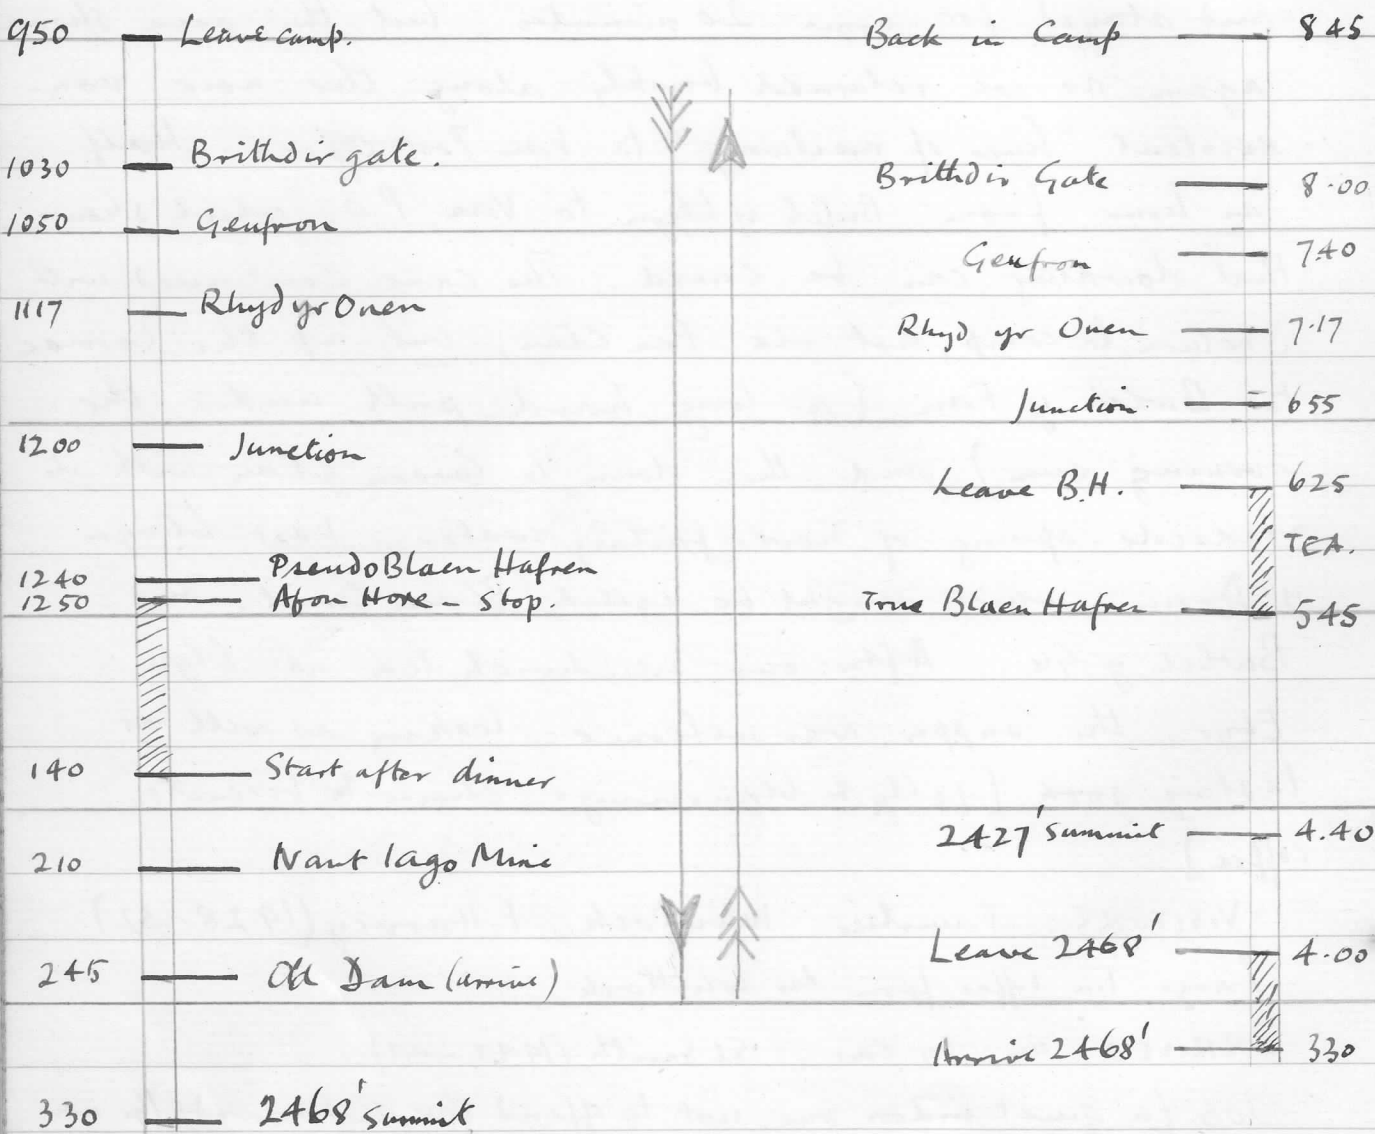 950 Leave camp.
1030 Brithdir gate.
1050 Geufron
1117 Rhyd yr Onen
1200 Junction
1240 Pseudo Blaen Hafren
1250 Afon Hore - Stop.
140 Start after dinner
210 Nant Iago Mine
245 Old Dam (arrive)
330 2468' summit
Back in Camp 845
Brithdir Gate 8.00
Geufron 740
Rhyd yr Onen 7.17
Junction 655
Leave B.H. 625
TEA.
True Blaen Hafren 545
2427' summit 4.40
Leave 2468' 4.00
Arrive 2468' 330